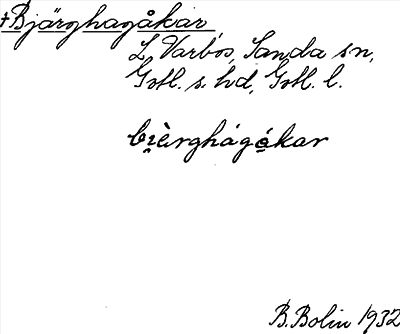 +Bjärghagåkar
L Varbos, Sanda sn,
Gotl. s. hd, Gotl. l.
bi̯èrghágákar
B. Bolin 1932